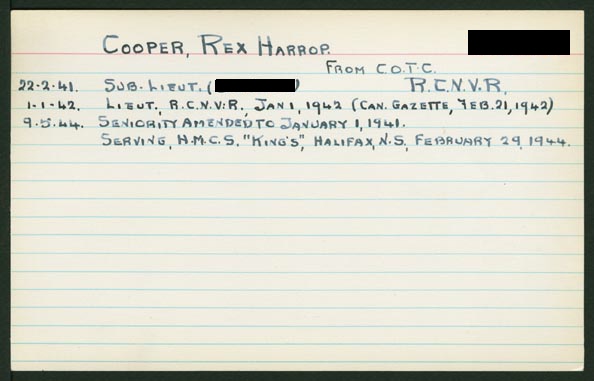 COOPER, REX HARROP.
FROM C.O.T.C.
22-2-41. SUB. LIEUT. ( ) R.C.N.V.R.
1-1-42. LIEUT., R.C.N.V.R., JAN 1, 1942 (CAN. GAZETTE, FEB. 21, 1942)
9.5.44. SENIORITY AMENDED TO JANUARY 1, 1941.
SERVING, H.M.C.S. "KING'S", HALIFAX, N.S., FEBRUARY 29, 1944.